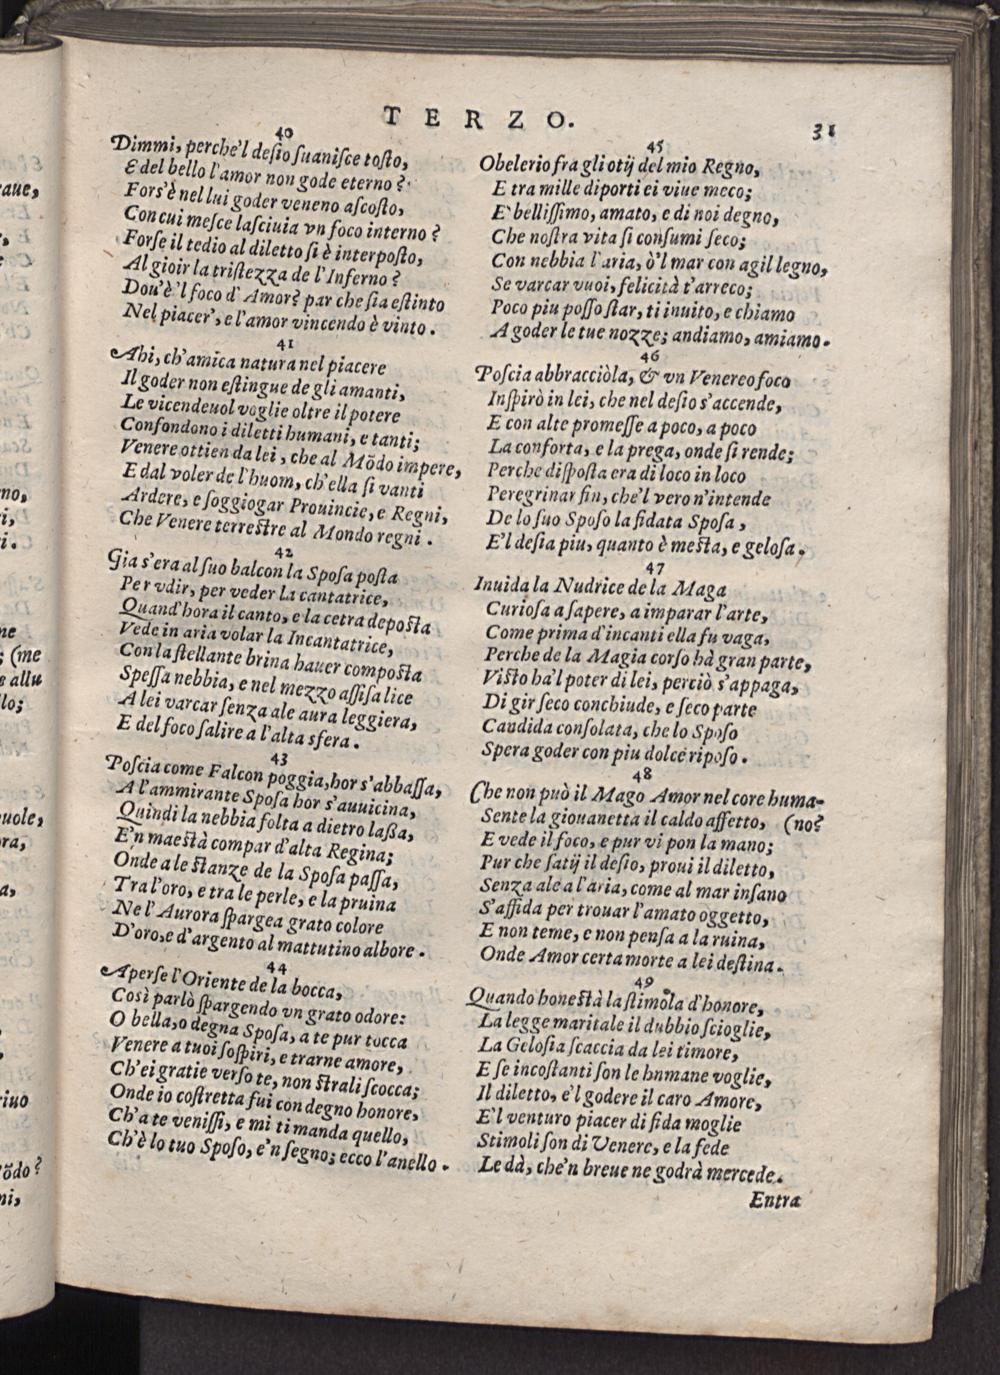 TERZO.
31
40
Dimmi, perche'l deſio ſuaniſce toſto,
E del bello l'amor non gode eterno?
Fors'è nel lui goder veneno aſcoſto,
Con cui meſce laſciuia vn foco interno?
Forſe il tedio al diletto ſi è interpoſto,
Al gioir la triſtezza de l'Inferno?
Dou'è 'l foco d'Amor? par che ſia eſtinto
Nel piacer', e l'amor vincendo è vinto.
41
Ahi, ch'amica natura nel piacere
Il goder non eſtingue de gli amanti,
Le vicendeuol voglie oltre il potere
Confondono i diletti humani, e tanti;
Venere ottien da lei, che al Mōdo impere,
E dal voler de l'huom, ch'ella ſi vanti
Ardere, e ſoggiogar Prouincie, e Regni,
Che Venere terreſtre al Mondo regni.
42
Gia s'era al ſuo balcon la Spoſa poſta
Per vdir, per veder la cantatrice,
Quand'hora il canto, e la cetra depoſta
Vede in aria volar la Incantatrice,
Con la ſtellante brina hauer compoſta
Speſſa nebbia, e nel mezzo aſſiſa lice
A lei varcar ſenza ale aura leggiera,
E del foco ſalire a l'alta sfera.
43
Poſcia come Falcon poggia, hor s'abbaſſa,
A l'ammirante Spoſa hor s'auuicina,
Quindi la nebbia folta a dietro laßa,
E'n maeſtà compar d'alta Regina;
Onde a le ſtanze de la Spoſa paſſa,
Tra l'oro, e tra le perle, e la pruina
Ne l'Aurora ſpargea grato colore
D'oro, e d'argento al mattutino albore.
44
Aperſe l'Oriente de la bocca,
Così parlò ſpargendo vn grato odore:
O bella, o degna Spoſa, a te pur tocca
Venere a tuoi ſoſpiri, e trarne amore,
Ch'ei gratie verſo te, non ſtrali ſcocca;
Onde io coſtretta fui con degno honore,
Ch'a te veniſſi, e mi ti manda quello,
Ch'è lo tuo Spoſo, e'n ſegno; ecco l'anello.
45
Obelerio fra gli otij del mio Regno,
E tra mille diporti ei viue meco;
E' belliſſimo, amato, e di noi degno,
Che noſtra vita ſi conſumi ſeco;
Con nebbia l'aria, ò'l mar con agil legno,
Se varcar vuoi, felicità t'arreco;
Poco piu poſſo ſtar, ti inuito, e chiamo
A goder le tue nozze; andiamo, amiamo.
46
Poſcia abbracciòla, & vn Venereo foco
Inſpirò in lei, che nel deſio s'accende,
E con alte promeſſe a poco, a poco
La conforta, e la prega, onde ſi rende;
Perche diſpoſta era di loco in loco
Peregrinar fin, che'l vero n'intende
De lo ſuo Spoſo la fidata Spoſa,
E'l deſia piu, quanto è meſta, e geloſa.
47
Inuida la Nudrice de la Maga
Curioſa a ſapere, a imparar l'arte,
Come prima d'incanti ella fu vaga,
Perche de la Magia corſo hà gran parte,
Viſto ha'l poter di lei, perciò s'appaga,
Di gir ſeco conchiude, e ſeco parte
Candida conſolata, che lo Spoſo
Spera goder con piu dolce ripoſo.
48
Che non può il Mago Amor nel core huma-
Sente la giouanetta il caldo affetto, (no?
E vede il foco, e pur vi pon la mano;
Pur che ſatij il deſio, proui il diletto,
Senza ale a l'aria, come al mar inſano
S'affida per trouar l'amato oggetto,
E non teme, e non penſa a la ruina,
Onde Amor certa morte a lei deſtina.
49
Quando honeſtà la ſtimola d'honore,
La legge maritale il dubbio ſcioglie,
La Geloſia ſcaccia da lei timore,
E ſe incoſtanti ſon le hnmane voglie,
Il diletto, e'l godere il caro Amore,
E'l venturo piacer di fida moglie
Stimoli ſon di Venere, e la fede
Le dà, che'n breue ne godrà mercede.
Entra